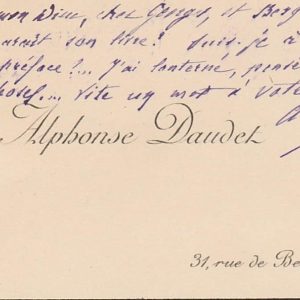 mon Dieu, cher Gongs, et Berg
parait son livre! Suis-je à
préface!... J'ai lanterné, pensé
Vite un mot à votre
Alphonse Daudet
31, rue de Be